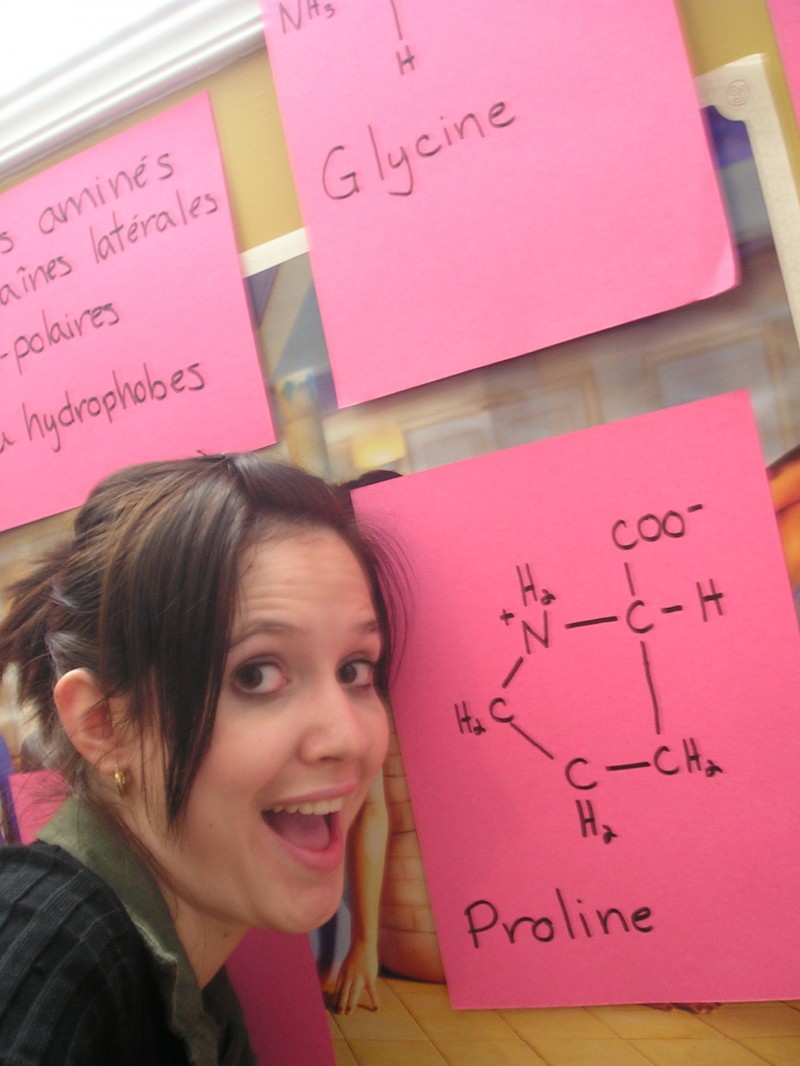 s aminés
aînes latérales
-polaires
u hydrophobes
NH₃
H
Glycine
COO⁻
H₂
⁺N — C - H
H₂C
C — CH₂
H₂
Proline